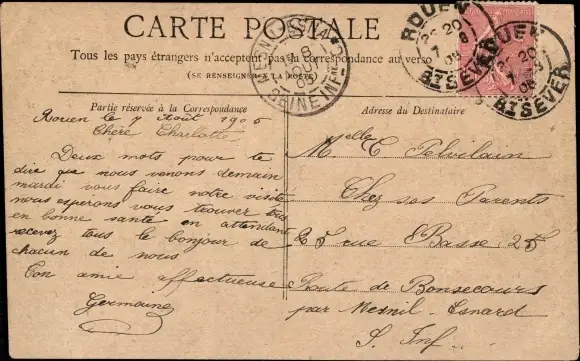 CARTE POSTALE
Tous les pays étrangers n'acceptent pas la Correspondance au verso
(SE RENSEIGNER À LA POSTE)
Partie réservée à la Correspondance
Rouen le 7 Août 1905
Chère Charlotte
Deux mots pour te
dire que nous venons demain
mardi vous faire notre visite
nous esperons vous trouver tous
en bonne santé en attendant
recevez tous le bonjour de
chacun de nous
Ton amie affectueuse
Germaine
Adresse du Destinataire
Melle C
Chez ses Parents
25 rue Basse 25
Route de Bonsecours
par Mesnil-Esnard
S. Inf.
ROUEN
20
7 8
05
BISEVER
ROUEN
20
7 8
05
BISEVER
8
AOUT
05
SEINE INFRE